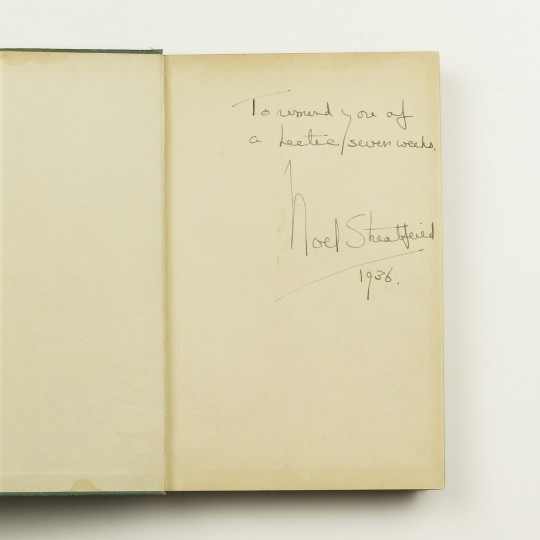 To remind you of
a hectic seven weeks.
Noel Streatfeild
1936.